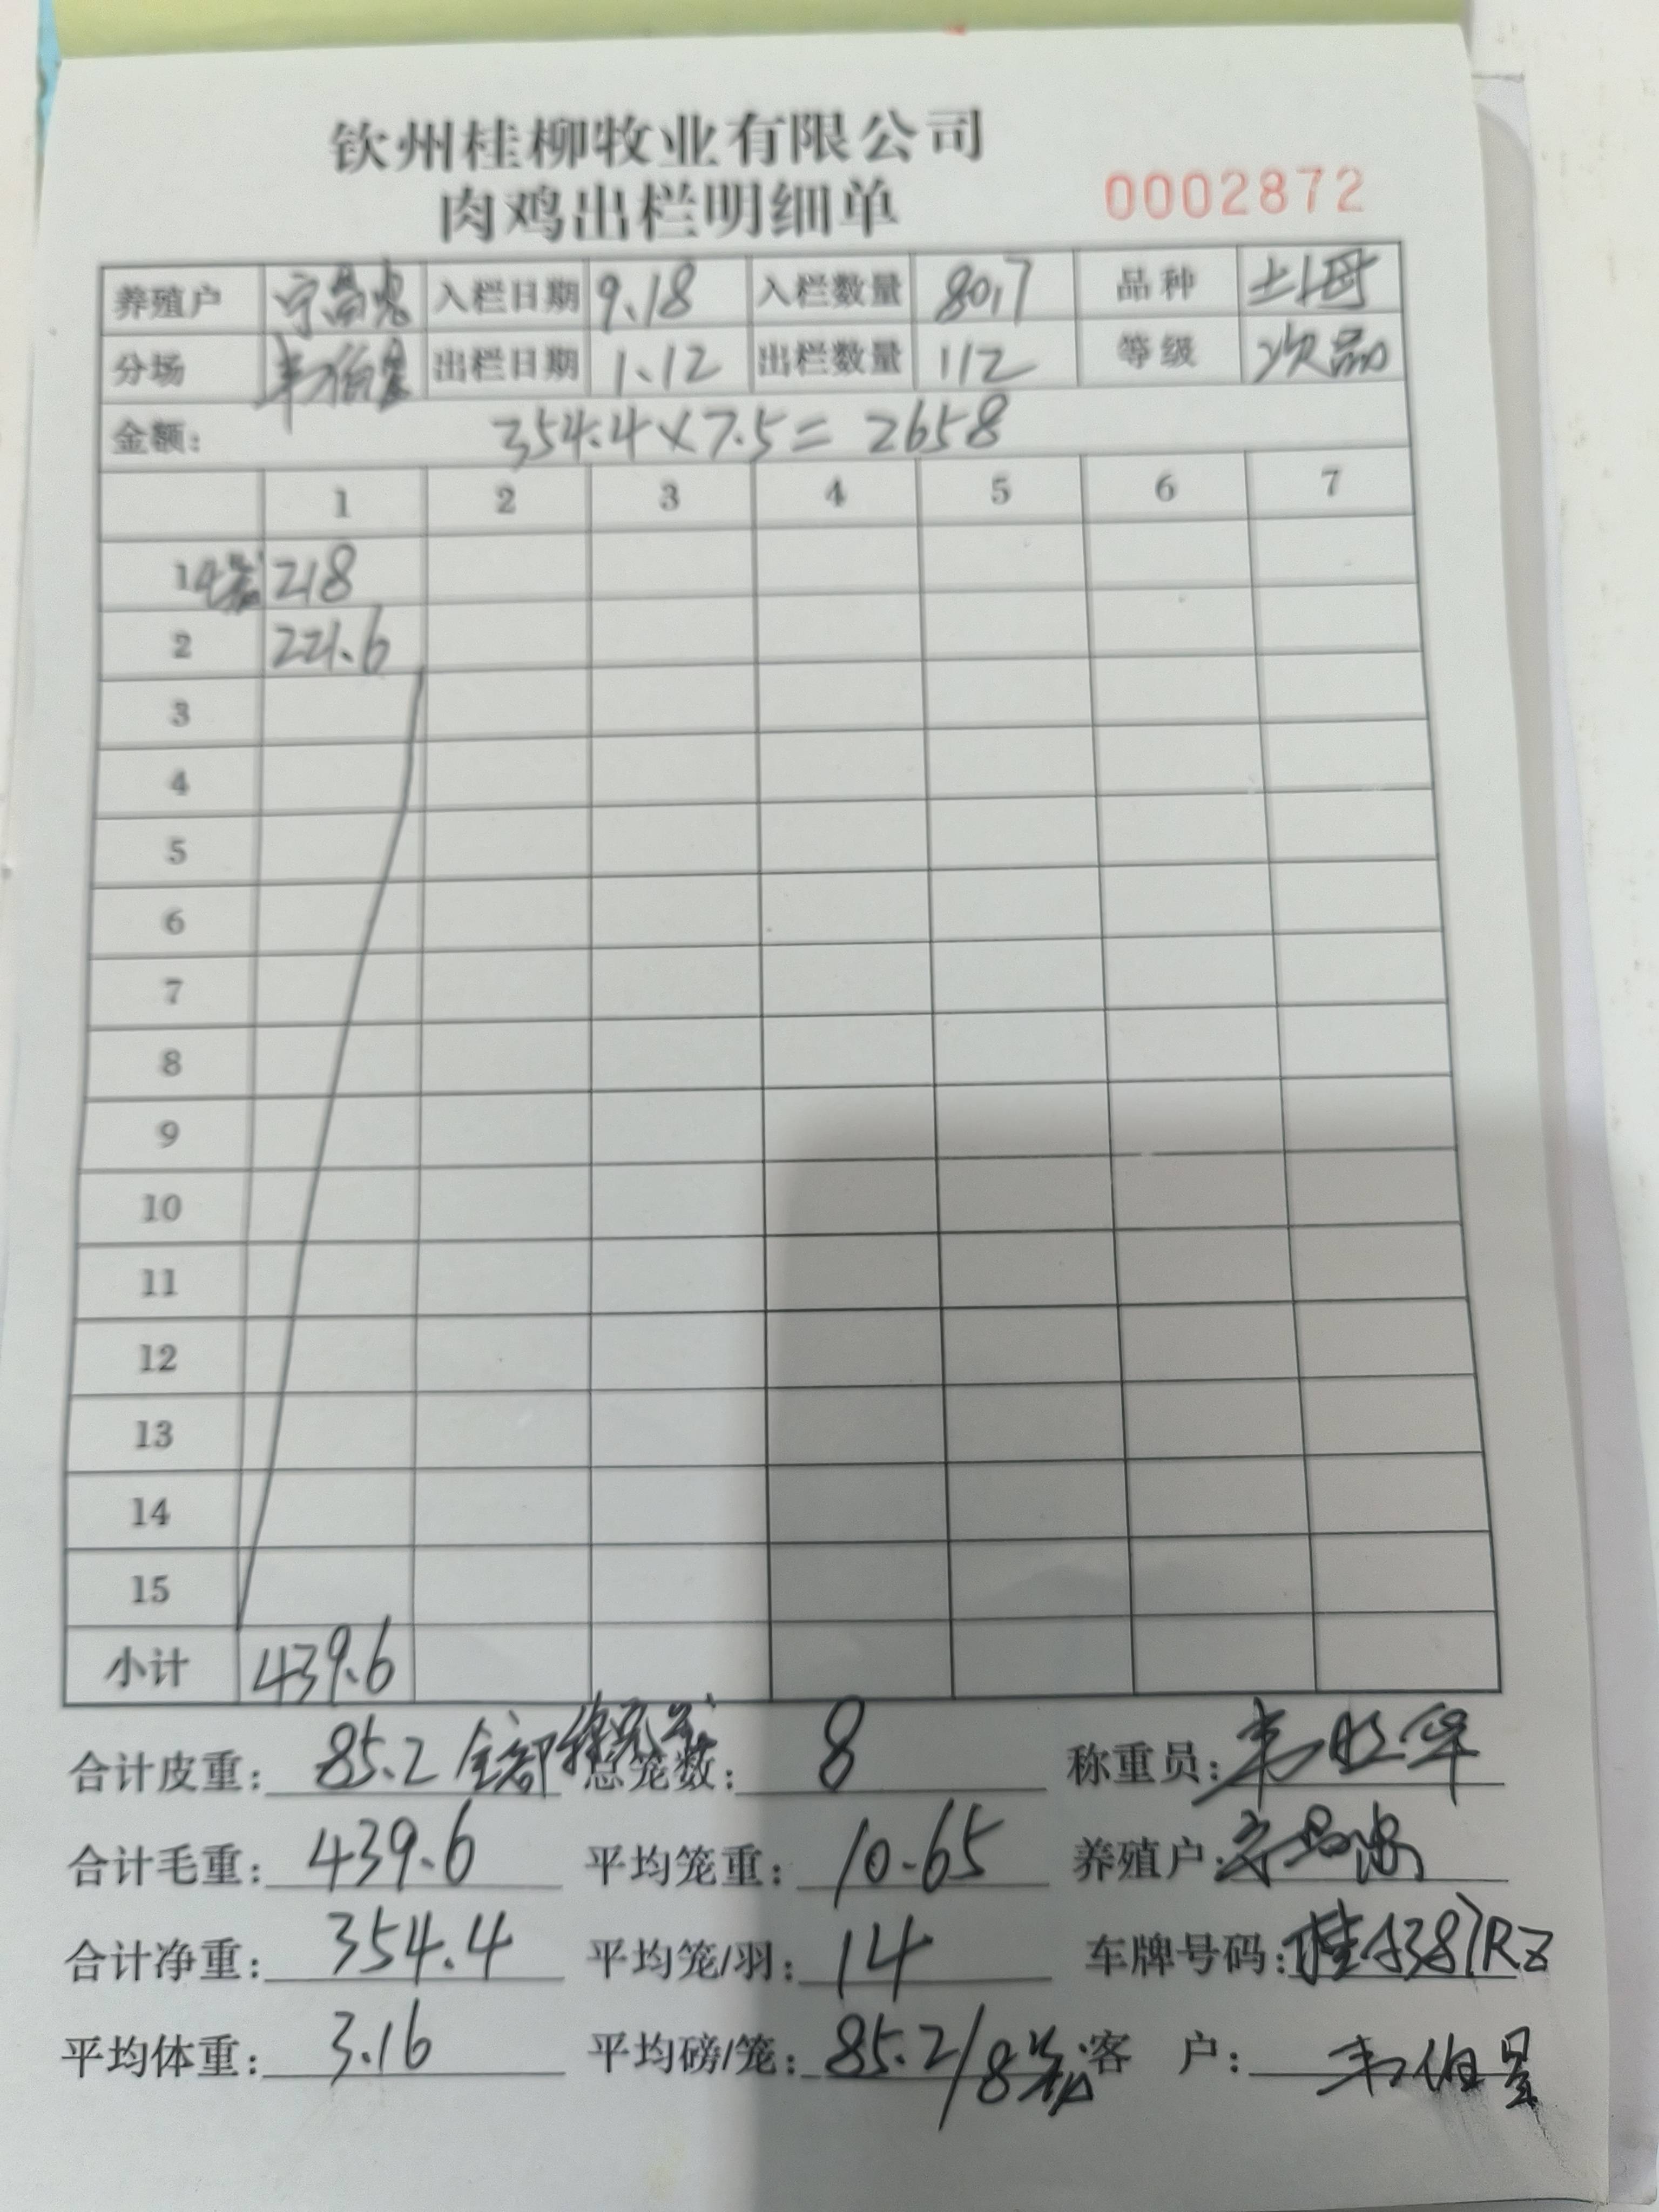 钦州桂柳牧业有限公司
肉鸡出栏明细单 0002872
养殖户 入栏日期 9.18 入栏数量 80,7 品种 土母
分场 韦伯星 出栏日期 1.12 出栏数量 112 等级 次品
金额: 354.4×7.5=2658
1 2 3 4 5 6 7
1 4笼 218
2 221.6
3
4
5
6
7
8
9
10
11
12
13
14
15
小计 439.6
合计皮重: 85.2 全部 总笼数: 8 称重员:
合计毛重: 439.6 平均笼重: 10.65 养殖户:
合计净重: 354.4 平均笼/羽: 14 车牌号码: 桂A387RZ
平均体重: 3.16 平均磅/笼: 85.2/8笼 客 户: 韦伯星